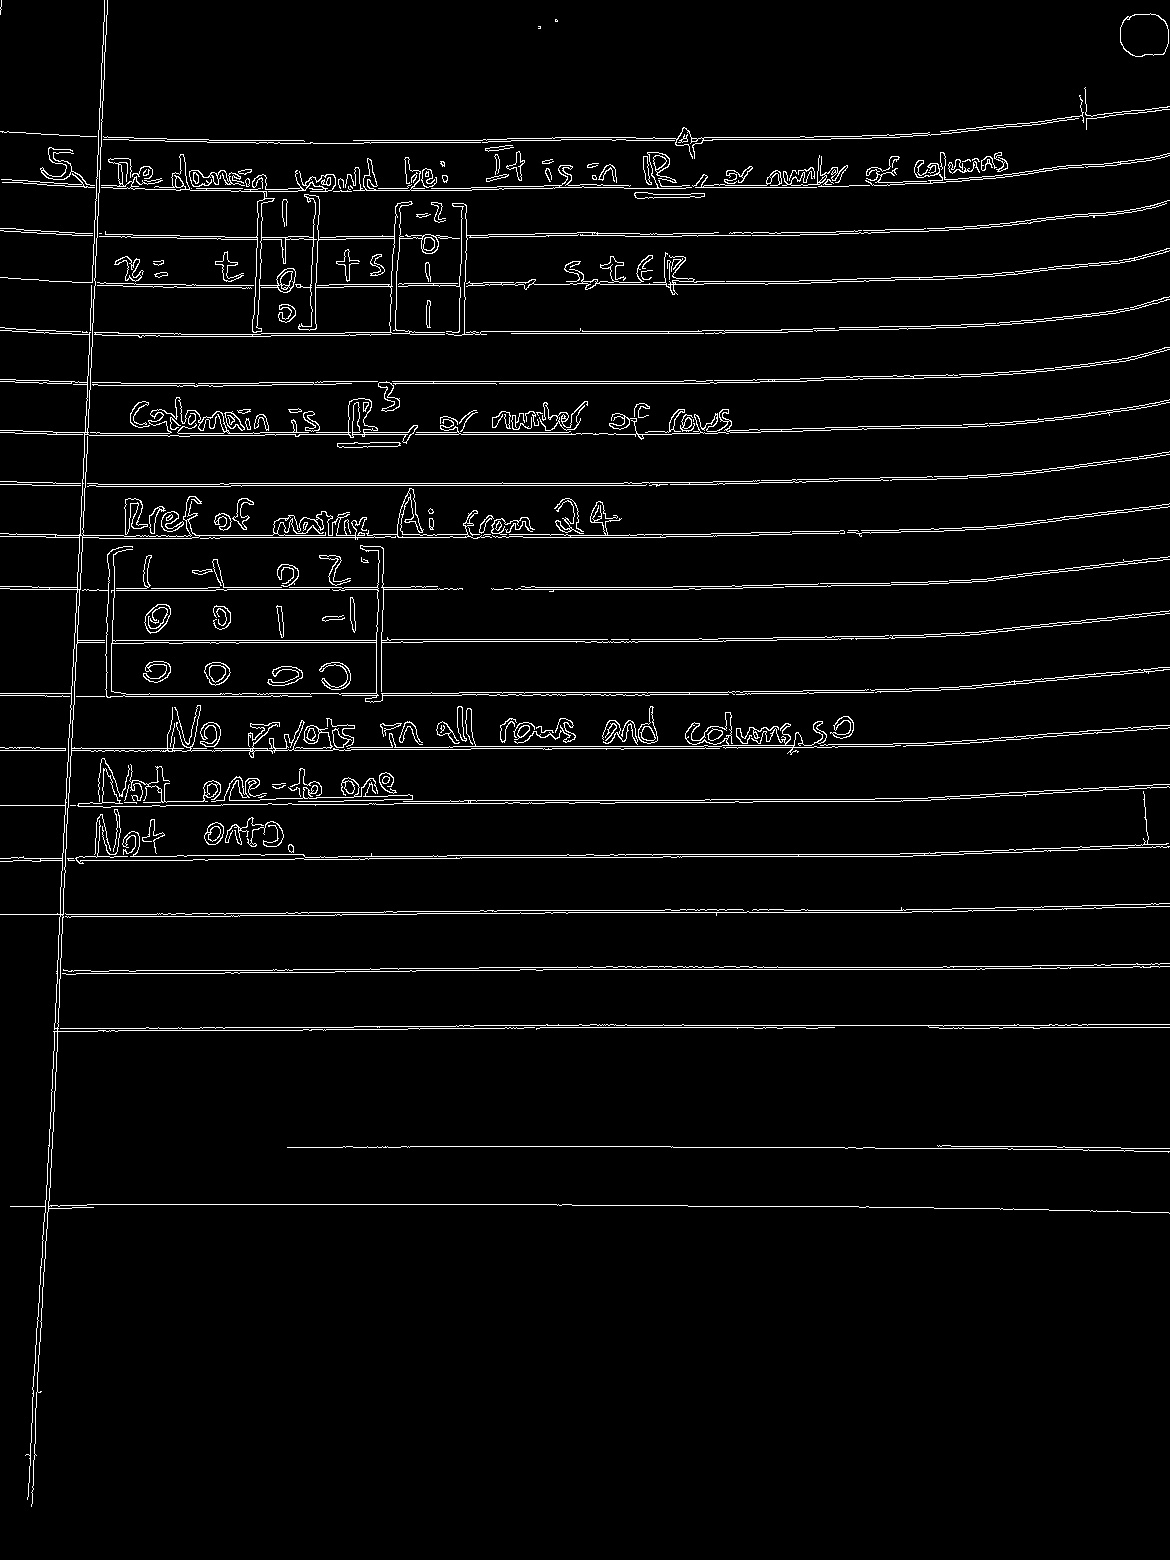 5. The domain would be: It is in ℝ⁴, or number of columns
x = t [1 1 0 0] + s [-2 0 1 1], s,t ∈ ℝ
Codomain is ℝ³, or number of rows
Rref of matrix A: from Q4
1 -1 0 2
0 0 1 -1
0 0 0 0
No pivots in all rows and colums, so
Not one-to one
Not onto.